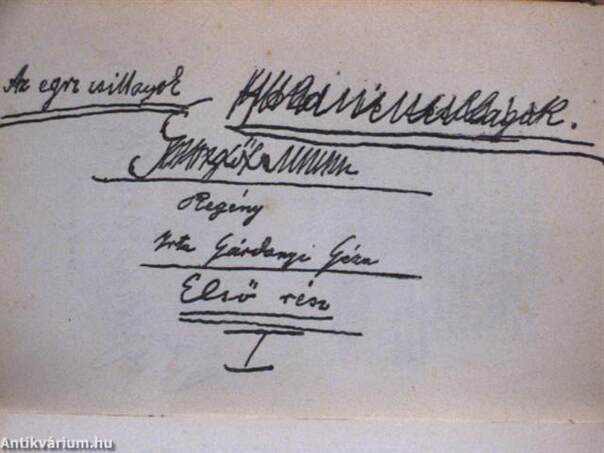 Az egri csillagok
Regény
Irta Gárdonyi Géza
Első rész
I
Antikvárium.hu